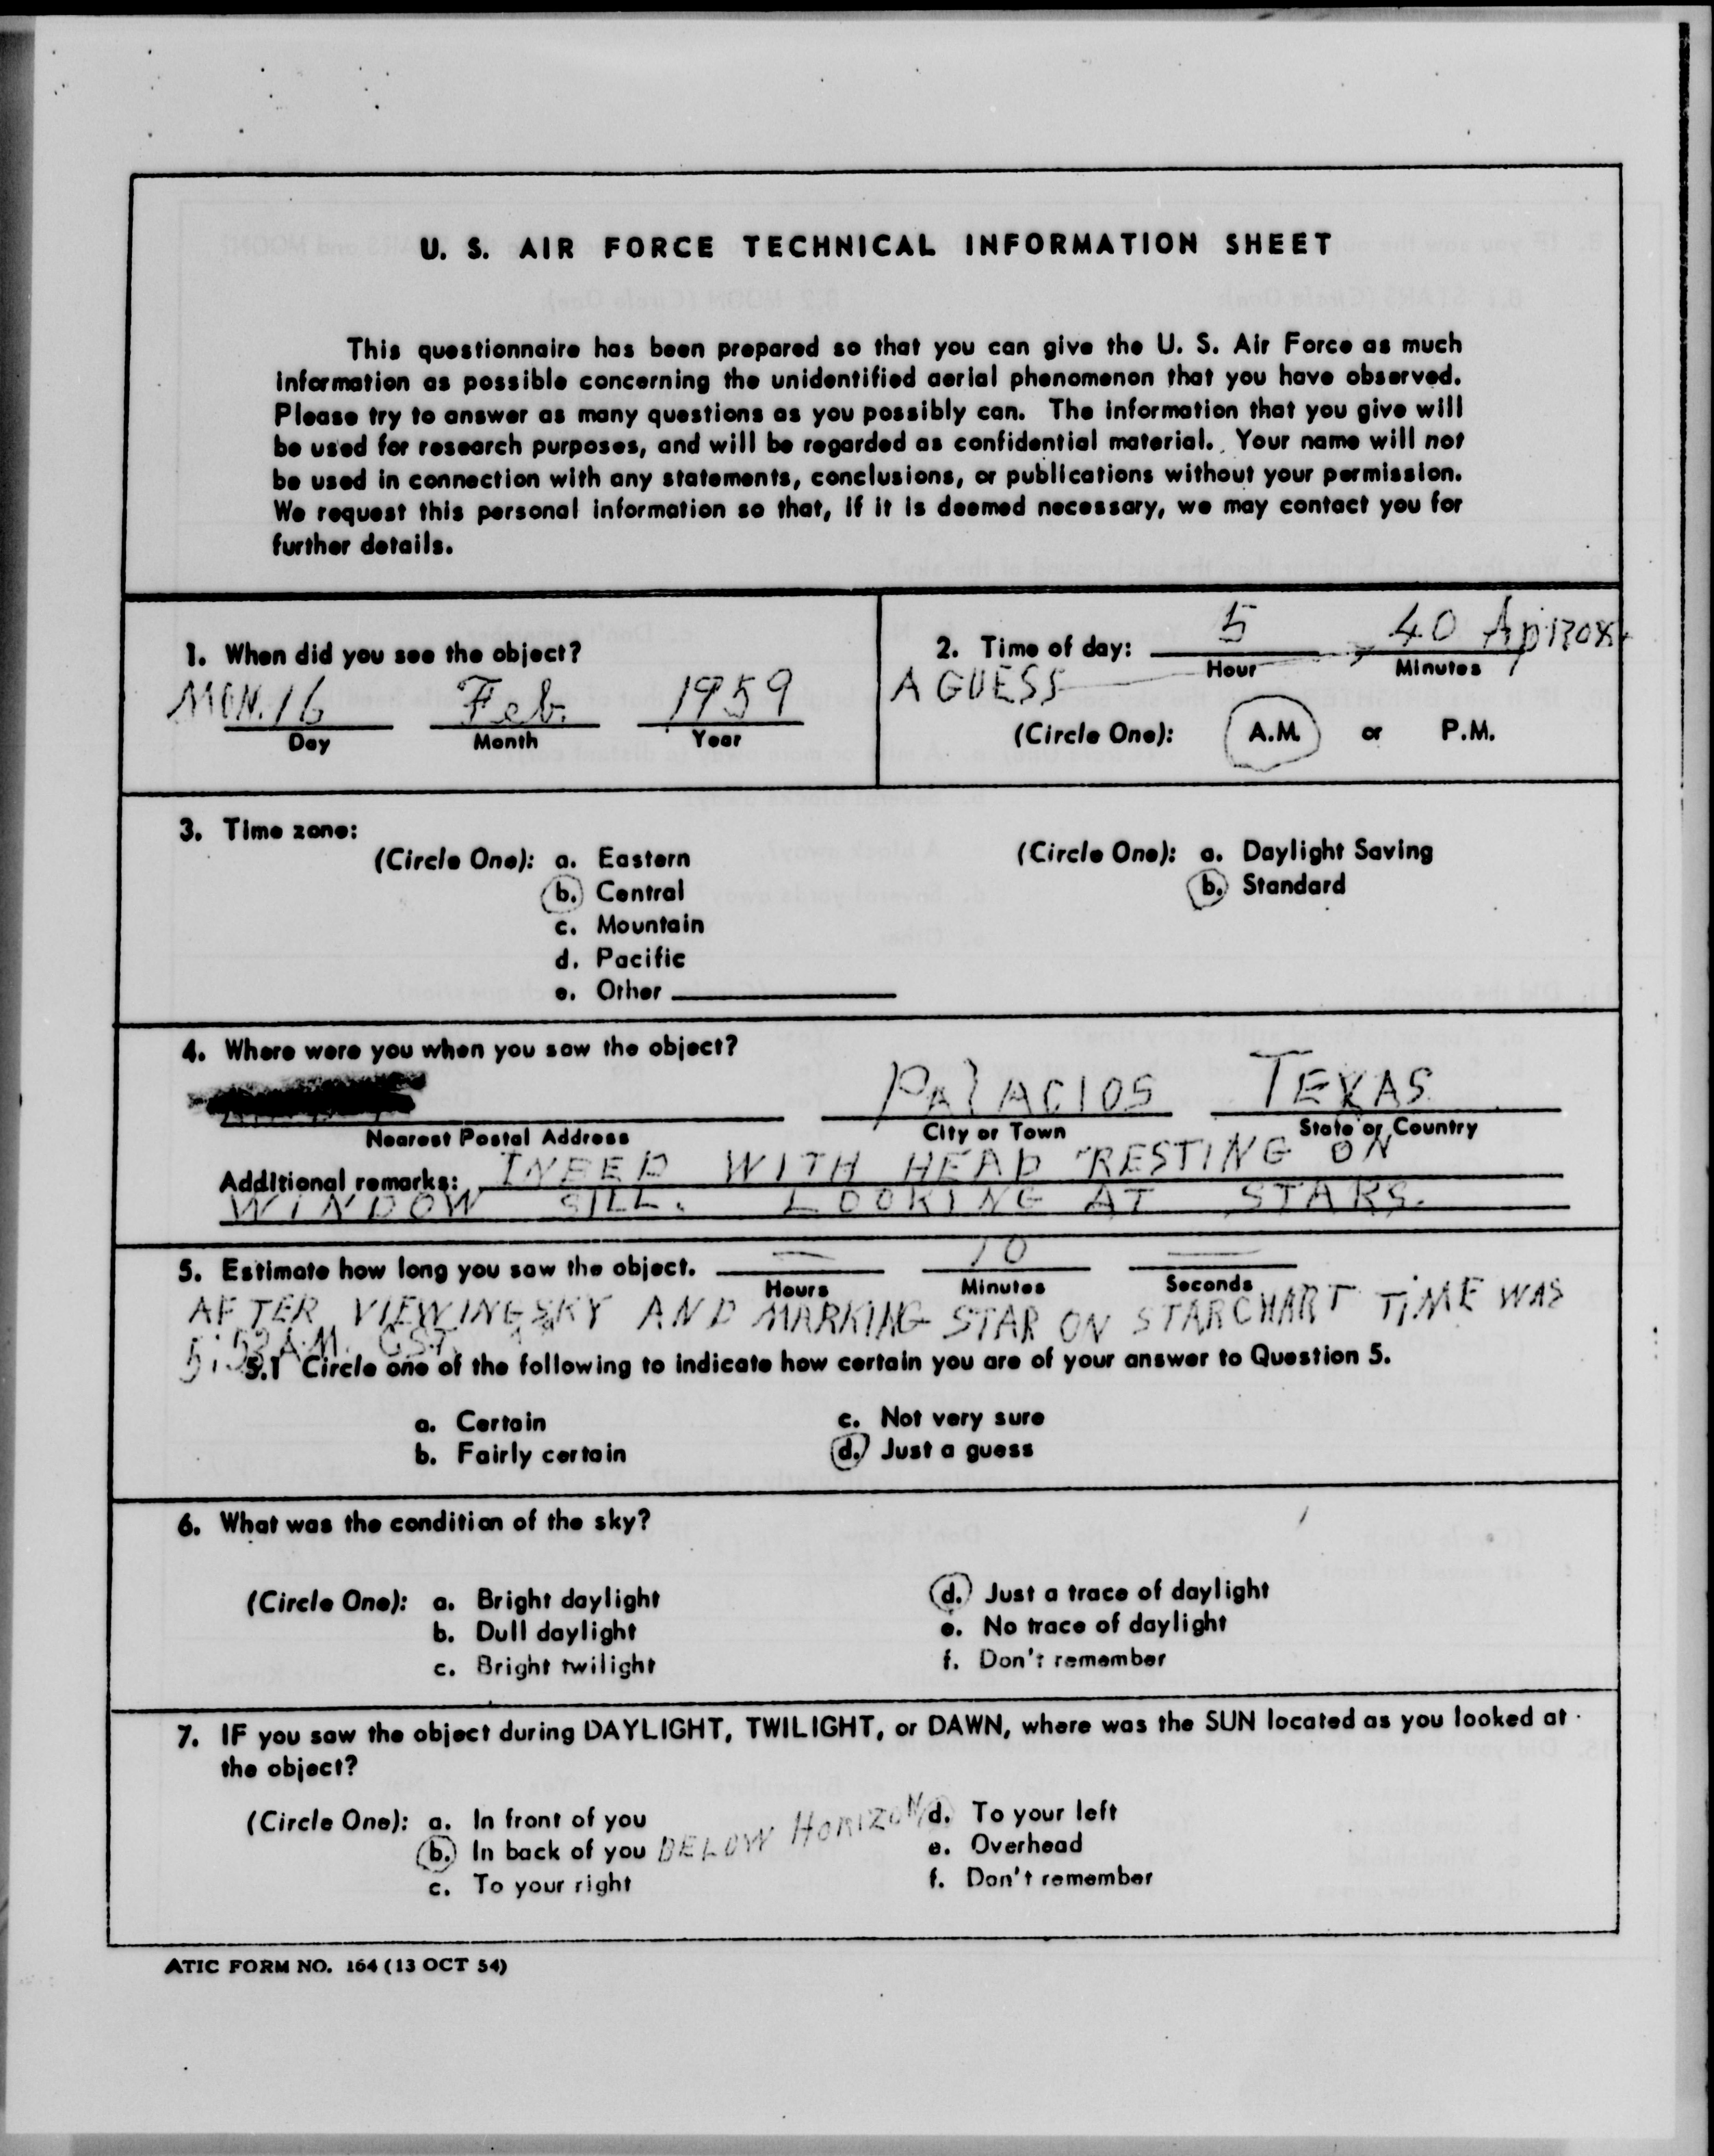 U. S. AIR FORCE TECHNICAL INFORMATION SHEET
This questionnaire has been prepared so that you can give the U. S. Air Force as much
information as possible concerning the unidentified aerial phenomenon that you have observed.
Please try to answer as many questions as you possibly can. The information that you give will
be used for research purposes, and will be regarded as confidential material. Your name will not
be used in connection with any statements, conclusions, or publications without your permission.
We request this personal information so that, if it is deemed necessary, we may contact you for
further details.
1. When did you see the object?
MON. 16 Feb. 1959
Day Month Year
2. Time of day: 5 40 Approx.
Hour Minutes
A GUESS
(Circle One): A.M. or P.M.
3. Time zone:
(Circle One): a. Eastern
b. Central
c. Mountain
d. Pacific
e. Other
(Circle One): a. Daylight Saving
b. Standard
4. Where were you when you saw the object?
PALACIOS TEXAS
Nearest Postal Address City or Town State or Country
Additional remarks: IN BED WITH HEAD RESTING ON
WINDOW SILL. LOOKING AT STARS.
5. Estimate how long you saw the object. — 10 —
Hours Minutes Seconds
AFTER VIEWING SKY AND MARKING STAR ON STARCHART TIME WAS
5:53 A.M. CST.
5.1 Circle one of the following to indicate how certain you are of your answer to Question 5.
a. Certain c. Not very sure
b. Fairly certain d. Just a guess
6. What was the condition of the sky?
(Circle One): a. Bright daylight d. Just a trace of daylight
b. Dull daylight e. No trace of daylight
c. Bright twilight f. Don't remember
7. IF you saw the object during DAYLIGHT, TWILIGHT, or DAWN, where was the SUN located as you looked at
the object?
(Circle One): a. In front of you d. To your left
b. In back of you BELOW HORIZON e. Overhead
c. To your right f. Don't remember
ATIC FORM NO. 164 (13 OCT 54)